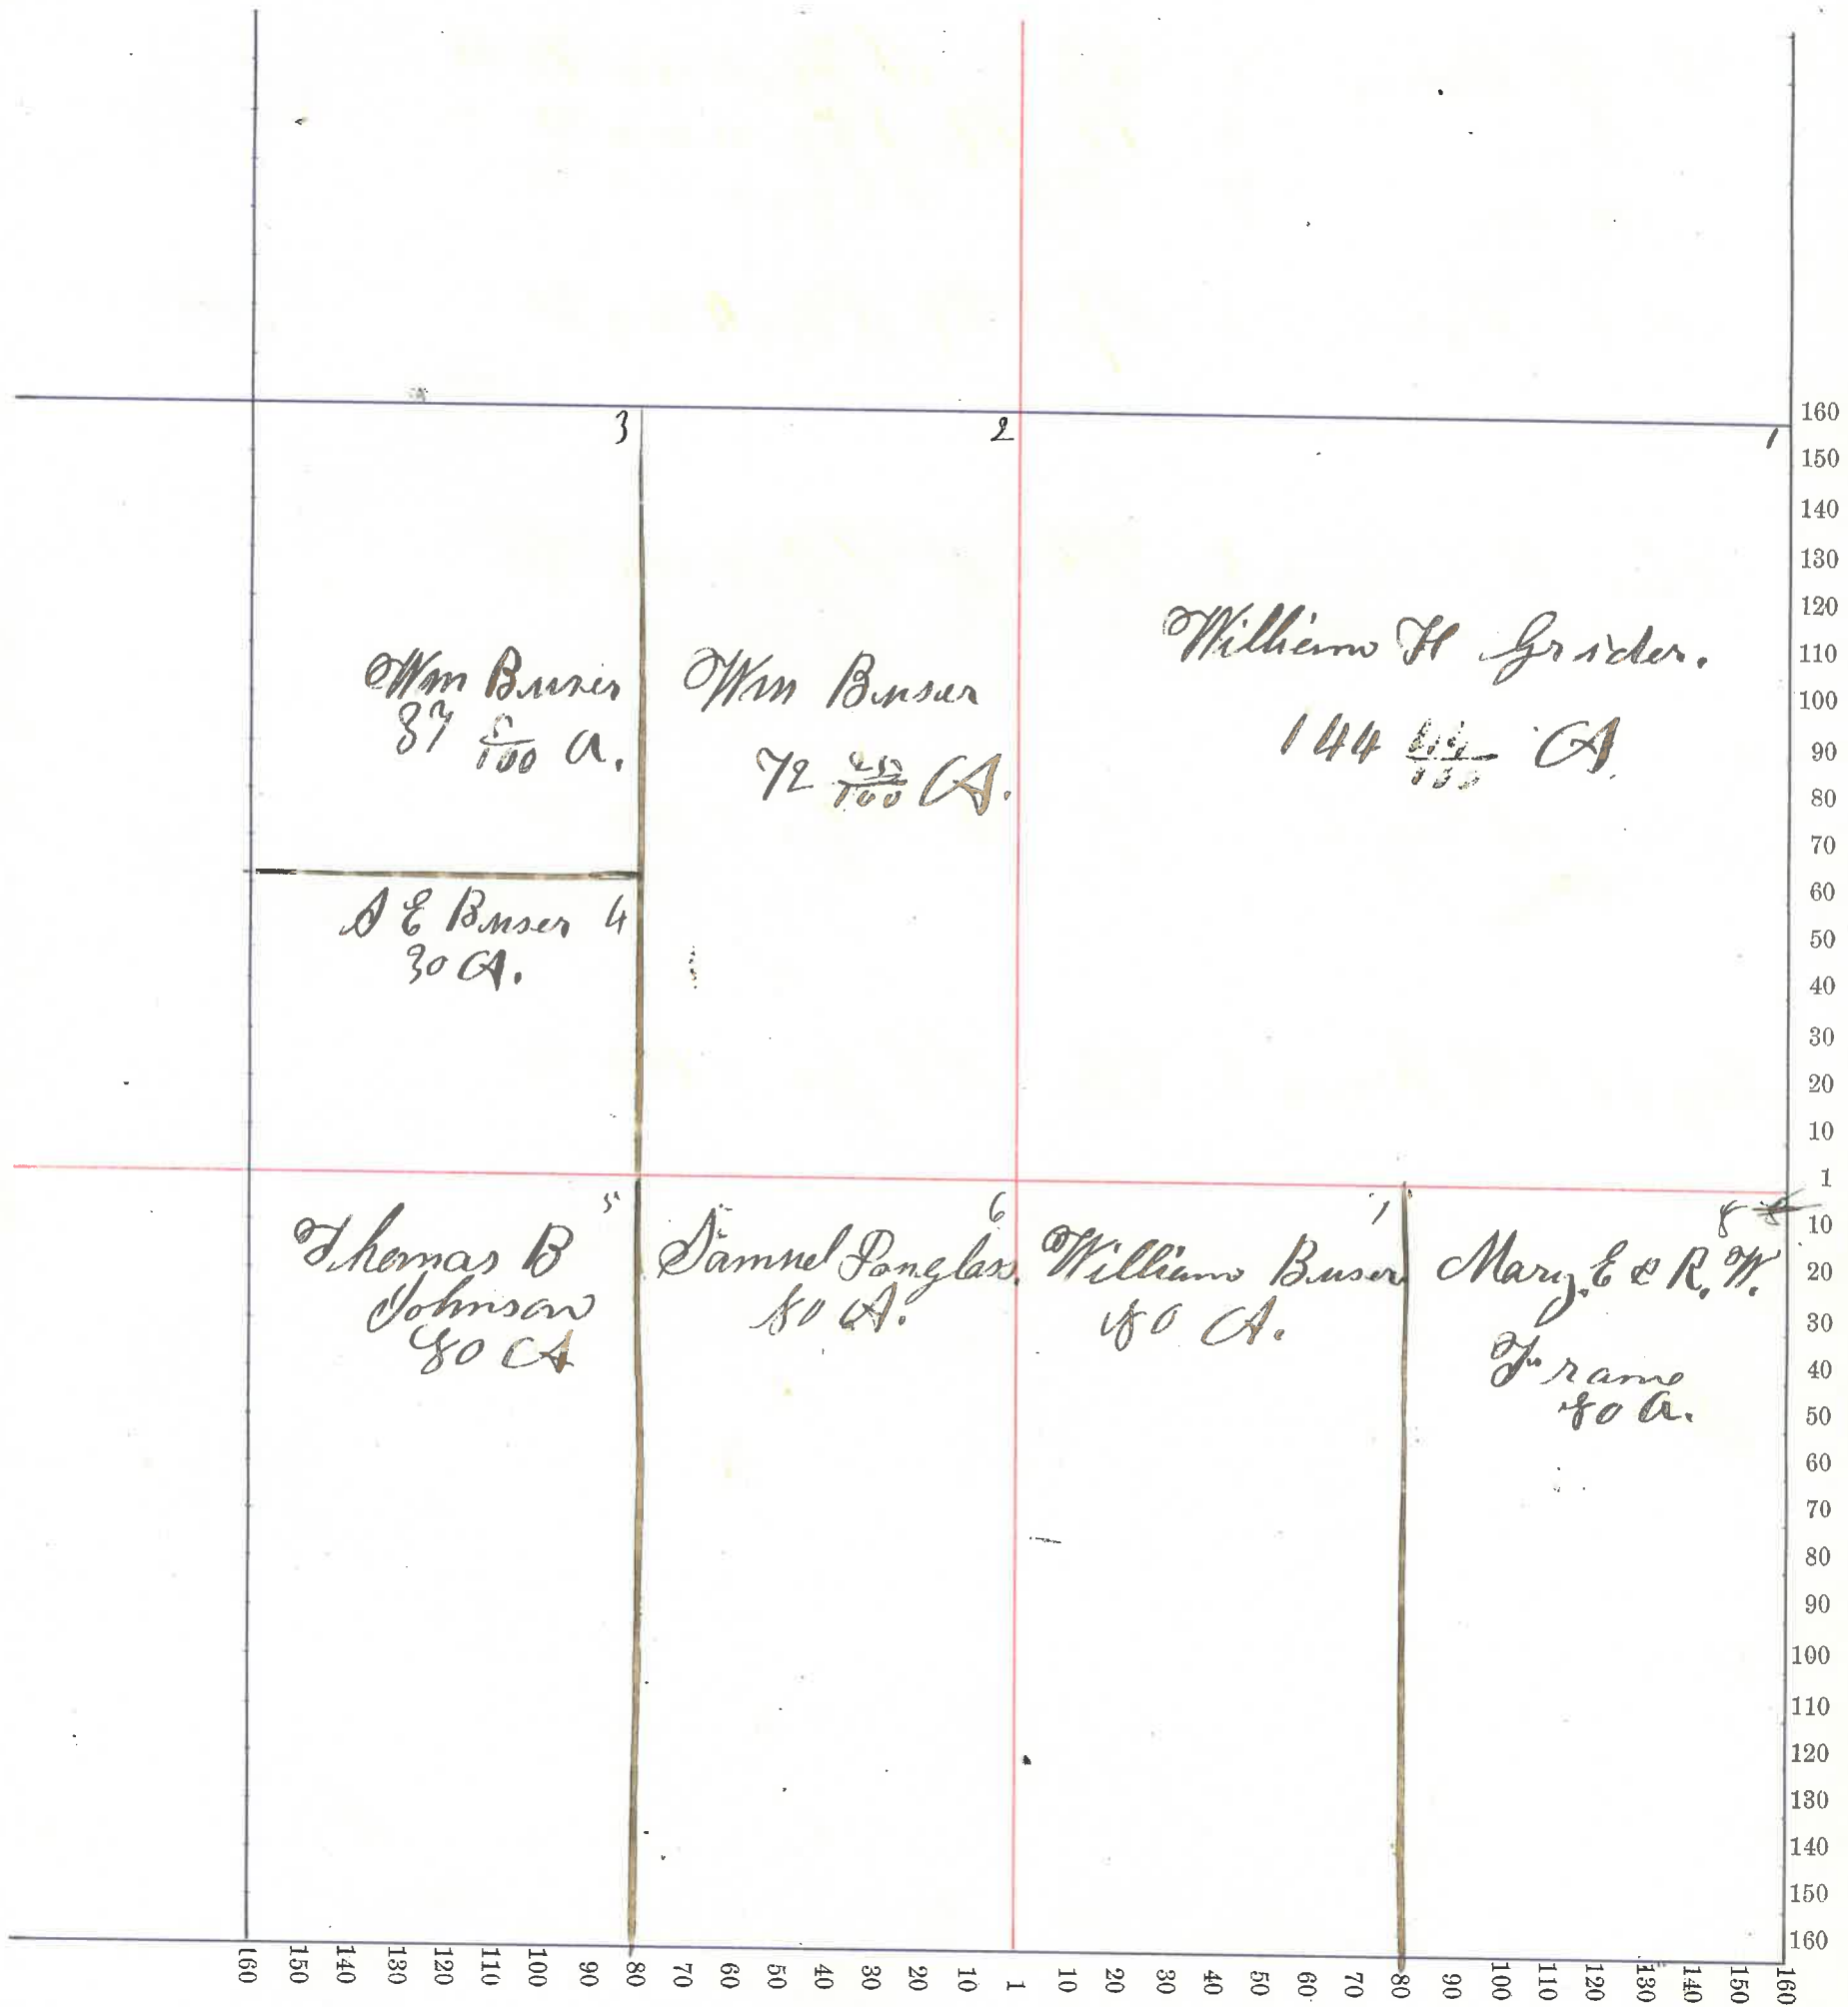 3
2
1
Wm Buser
37 5/100 a.
Wm Buser
72 /100 A.
William H Grider.
144 /100 A
S E Buser 4
30 A.
5
Thomas B
Johnson
80 A
6
Samuel Douglass.
80 A.
7
William Buser
80 A.
8
Mary. E & R. W.
Frame
80 A.
160
150
140
130
120
110
100
90
80
70
60
50
40
30
20
10
1
10
20
30
40
50
60
70
80
90
100
110
120
130
140
150
160
160 150 140 130 120 110 100 90 80 70 60 50 40 30 20 10 1 10 20 30 40 50 60 70 80 90 100 110 120 130 140 150 160